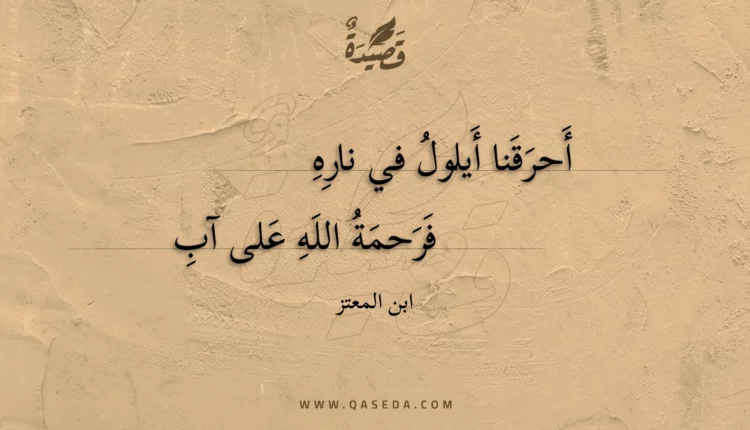 قَصِيدَةٌ
أَحرَقَنا أَيلولُ في نارِهِ
فَرَحمَةُ اللَهِ عَلى آبِ
ابن المعتز
WWW.QASEDA.COM